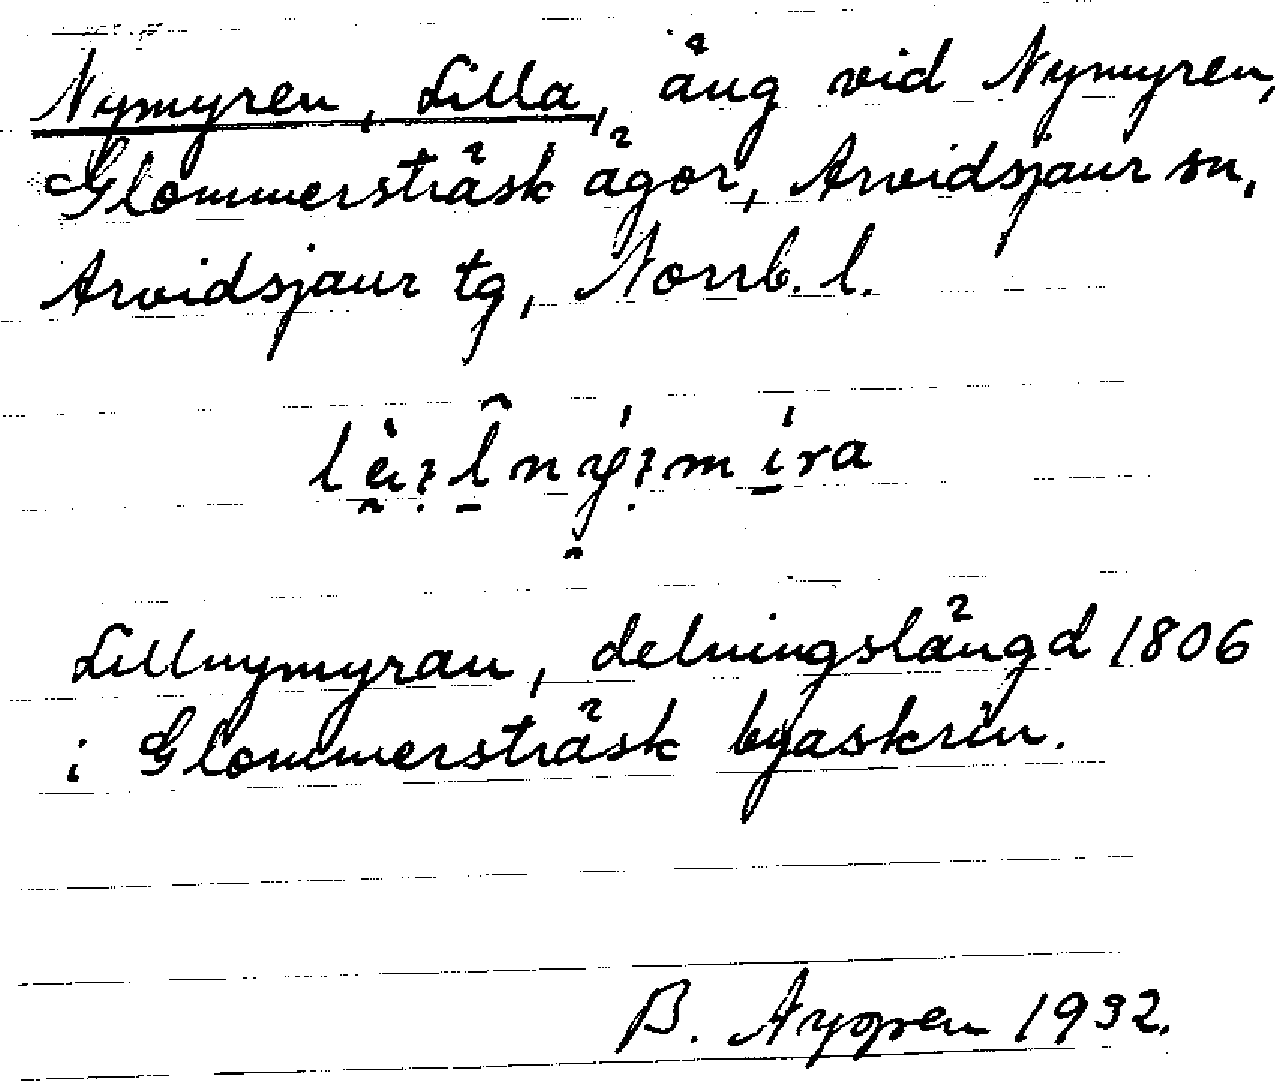 Nymyren, Lilla, äng vid Nymyren,
Glommersträsk ägor, Arvidsjaur sn,
Arvidsjaur tg, Norrb. l.
Lillnymyran, delningslängd 1806
i Glommersträsk byaskrin.
B. Nygren 1932.